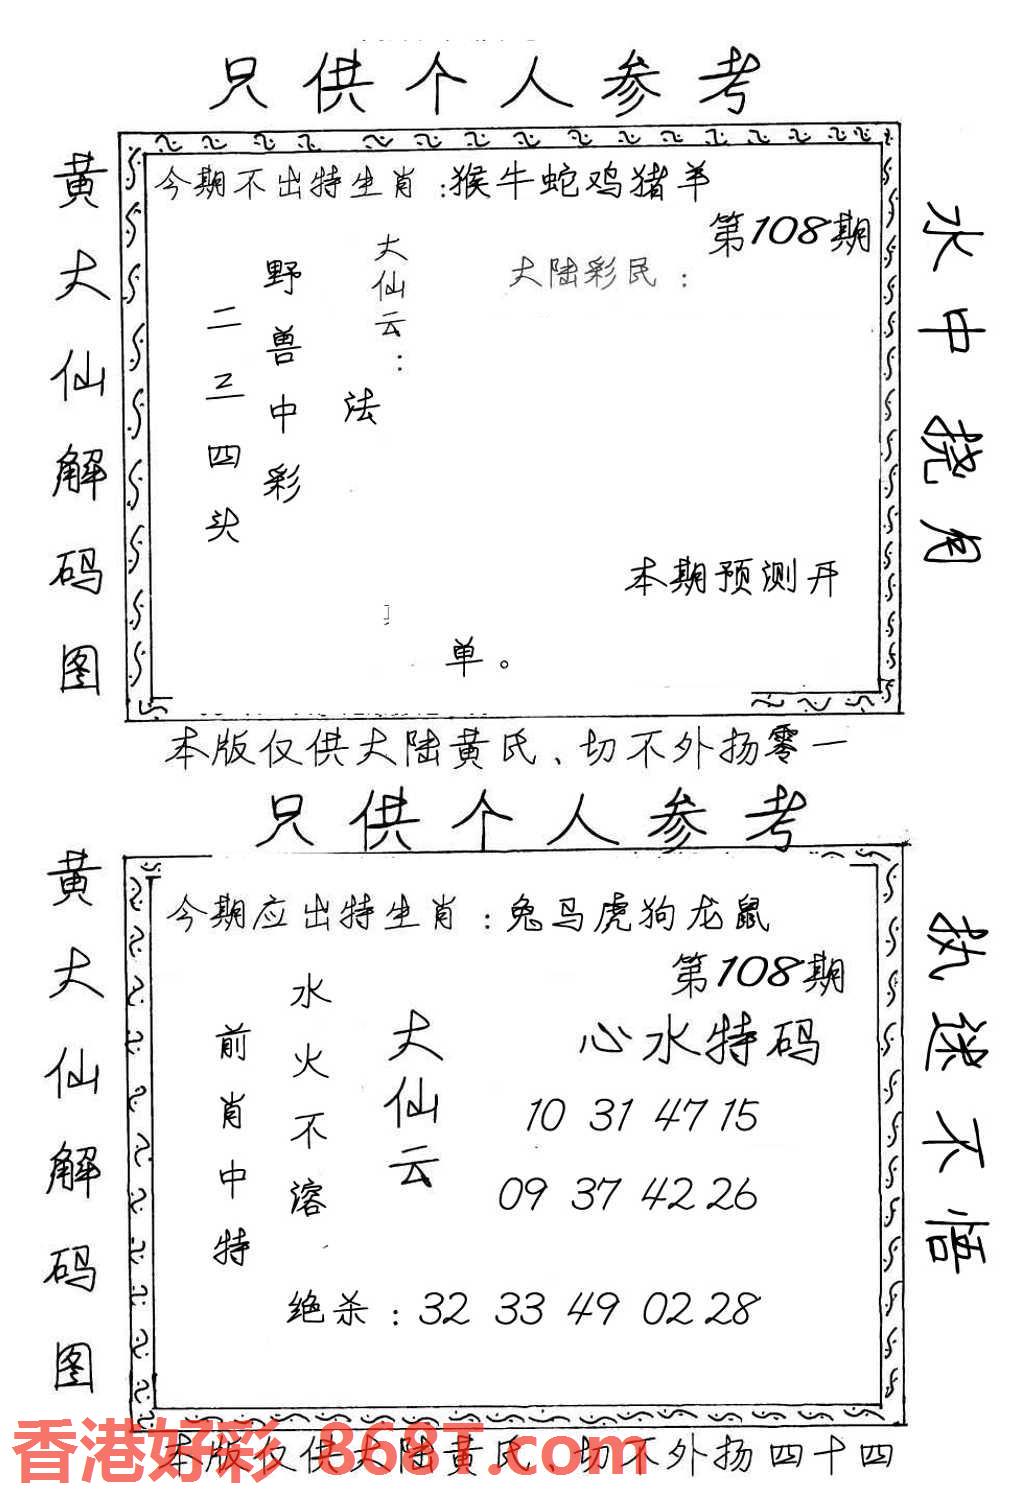 只供个人参考
黄大仙解码图
今期不出特生肖：猴牛蛇鸡猪羊
第108期
大陆彩民：
大仙云：
法
野兽中彩
二三四头
本期预测开
单。
水中捞月
本版仅供大陆黄氏、切不外扬零一
只供个人参考
黄大仙解码图
今期应出特生肖：兔马虎狗龙鼠
第108期
心水特码
10 31 47 15
09 37 42 26
大仙云
水火不溶
前肖中特
绝杀：32 33 49 02 28
执迷不悟
本版仅供大陆黄氏、切不外扬四十四
香港好彩 868T.com